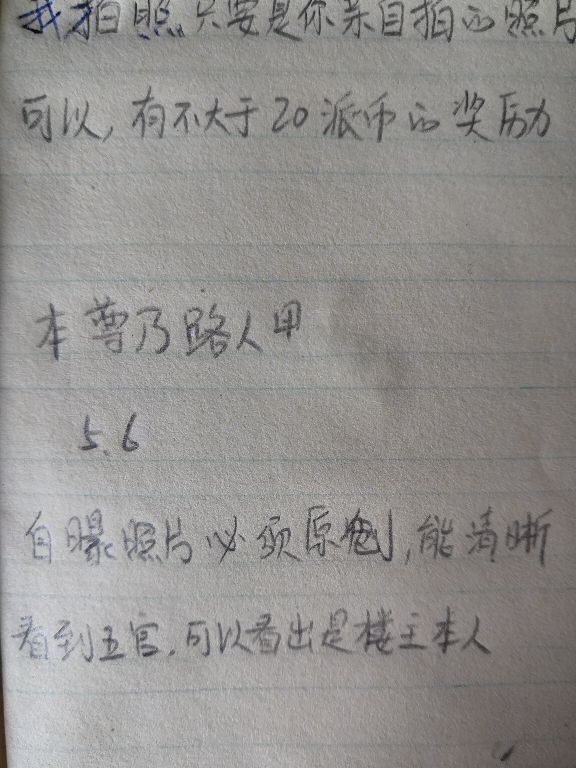 我拍照只要是你亲自拍的照片
可以,有不大于20派币的奖励
本尊乃路人甲
5.6
自曝照片必须原创,能清晰
看到五官.可以看出是楼主本人